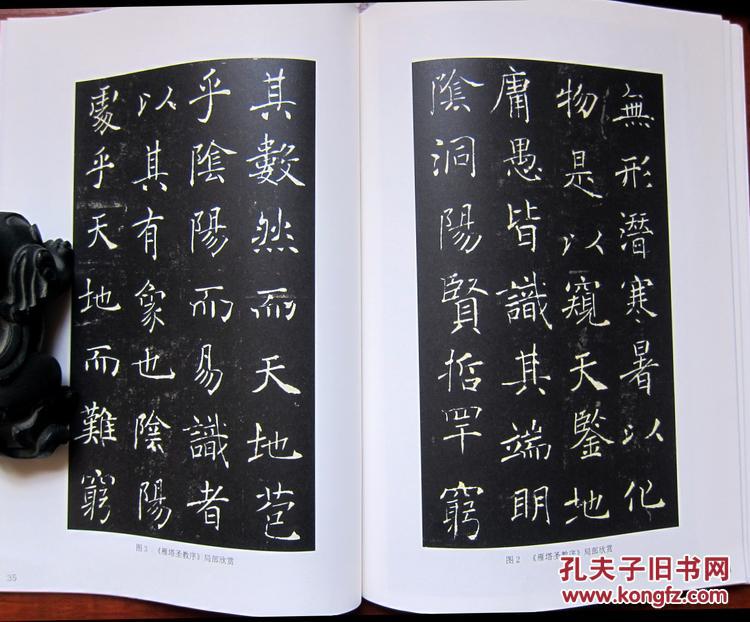 無形潛寒暑以化
物是以窺天鑒地
庸愚皆識其端明
陰洞陽賢哲罕窮
图2 《雁塔圣教序》局部欣赏
其數然而天地苞
乎陰陽而易識者
以其有象也陰陽
處乎天地而難窮
图3 《雁塔圣教序》局部欣赏
35
孔夫子旧书网
www.kongfz.com